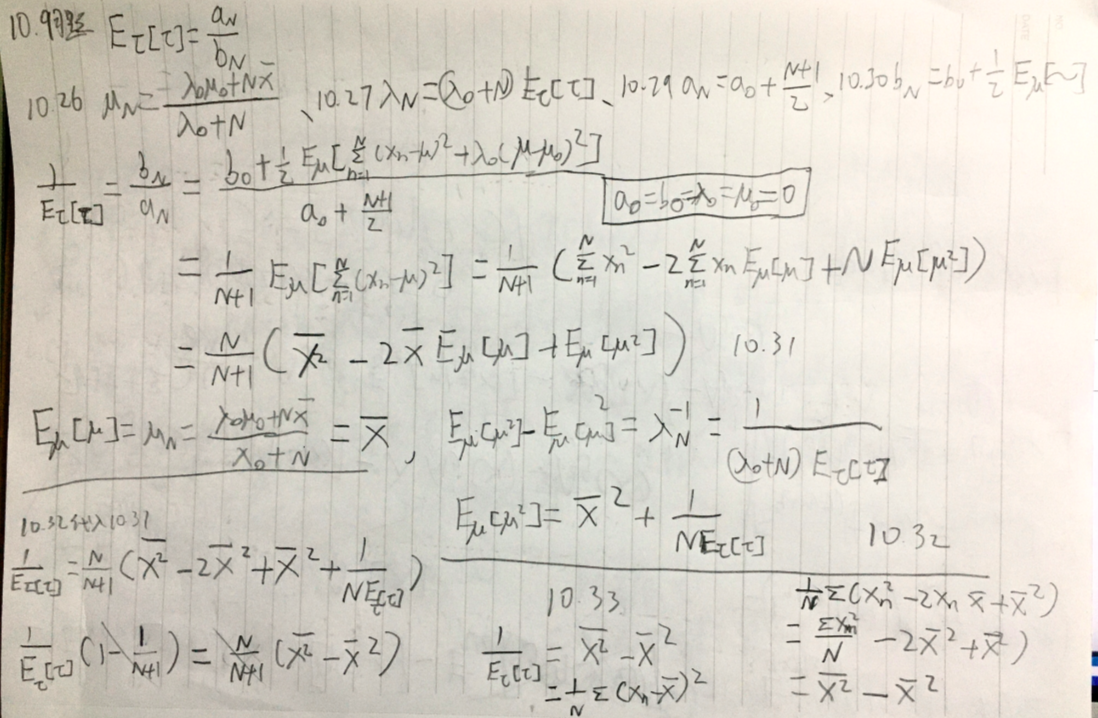 10.9問題 E_τ[τ] = a_N / b_N
10.26 μ_N = (λ_0μ_0 + N x̄) / (λ_0 + N) 、10.27 λ_N = (λ_0+N) E_τ[τ]、10.29 a_N = a_0 + (N+1)/2 、10.30 b_N = b_0 + 1/2 E_μ[~]
1/E_τ[τ] = b_N/a_N = (b_0 + 1/2 E_μ[Σ_{n=1}^N (x_n-μ)^2 + λ_0(μ-μ_0)^2]) / (a_0 + (N+1)/2)
a_0=b_0=λ_0=μ_0=0
= 1/(N+1) E_μ[Σ_{n=1}^N (x_n-μ)^2] = 1/(N+1) (Σ_{n=1}^N x_n^2 - 2Σ_{n=1}^N x_n E_μ[μ] + N E_μ[μ^2])
= N/(N+1) ( \overline{x^2} - 2x̄ E_μ[μ] + E_μ[μ^2]) 10.31
E_μ[μ] = μ_N = (λ_0μ_0+Nx̄)/(λ_0+N) = x̄ , E_μ[μ^2] - E_μ[μ]^2 = λ_N^{-1} = 1/((λ_0+N) E_τ[τ])
E_μ[μ^2] = x̄^2 + 1/(N E_τ[τ]) 10.32
10.32代入10.31
1/E_τ[τ] = N/(N+1) ( \overline{x^2} - 2x̄^2 + x̄^2 + 1/(N E_τ[τ]) )
1/E_τ[τ] (1 - 1/(N+1)) = N/(N+1) ( \overline{x^2} - x̄^2)
10.33
1/E_τ[τ] = \overline{x^2} - x̄^2
= 1/N Σ(x_n-x̄)^2
1/N Σ(x_n^2 - 2x_n x̄ + x̄^2)
= Σx_n^2/N - 2x̄^2 + x̄^2)
= \overline{x^2} - x̄^2